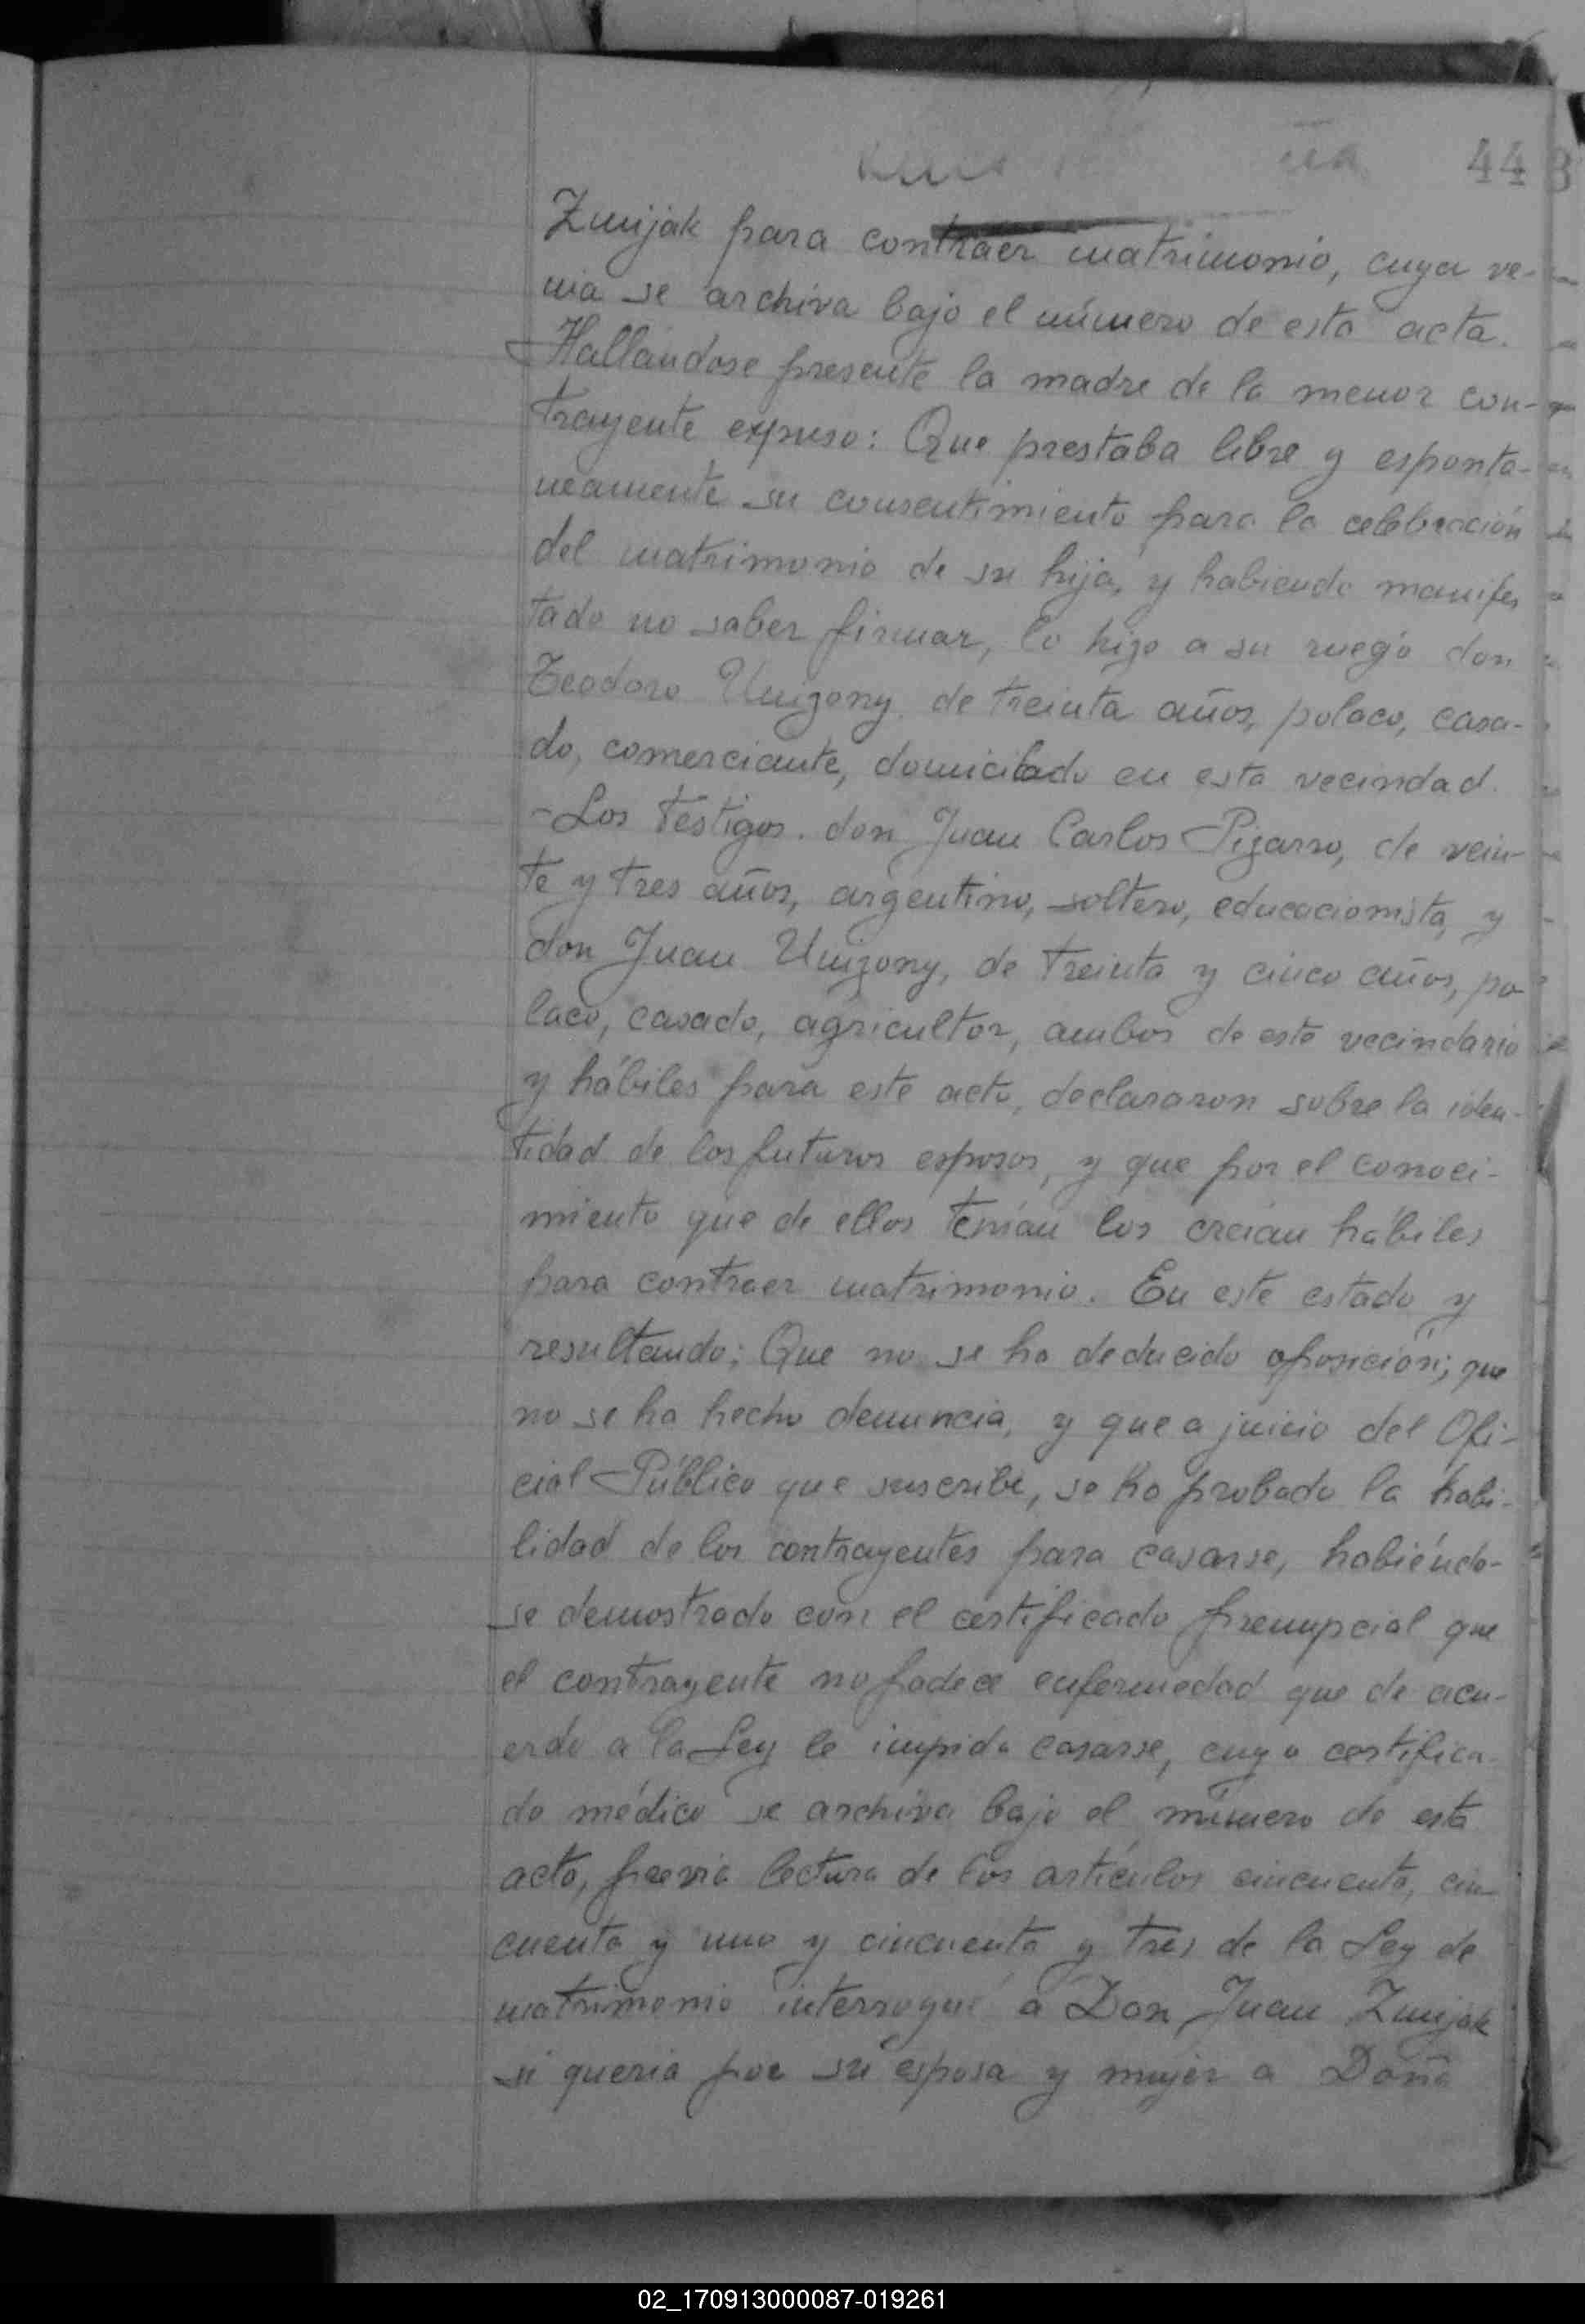 44
Zmijak para contraer matrimonio, cuya ve-
nia se archiva bajo el número de esta acta.
Hallándose presente la madre de la menor con-
trayente expuso: Que prestaba libre y esponta-
neamente su consentimiento para la celebración
del matrimonio de su hija, y habiendo manifes
tado no saber firmar, lo hizo a su ruego don
Teodoro de treinta años, polaco, casa-
do, comerciante, domicilado en esta vecindad.
-Los testigos. don Juan Carlos Pizarro, de vein-
te y tres años, argentino, soltero, educacionista, y
don Juan de treinta y cinco años, po
laco, casado, agricultor, ambos de este vecindario
y hábiles para este acto, declararon sobre la iden-
tidad de los futuros esposos, y que por el conoci-
miento que de ellos tenían los creían hábiles
para contraer matrimonio. En este estado y
resultando; Que no se ha deducido oposición; que
no se ha hecho denuncia, y que a juicio del Ofi-
cial Público que suscribe, se ha probado la habi-
lidad de los contrayentes para casarse, habiéndo-
se demostrado con el certificado prenupcial que
el contrayente no padece enfermedad que de acu-
erdo a la Ley le impida casarse, cuyo certifica-
do médico se archiva bajo el número de esta
acta, previa lectura de los artículos cincuenta, cin-
cuenta y uno y cincuenta y tres de la Ley de
matrimonio interrogué a Don Juan Zmijak
si quería por su esposa y mujer a Doña
02_170913000087-019261